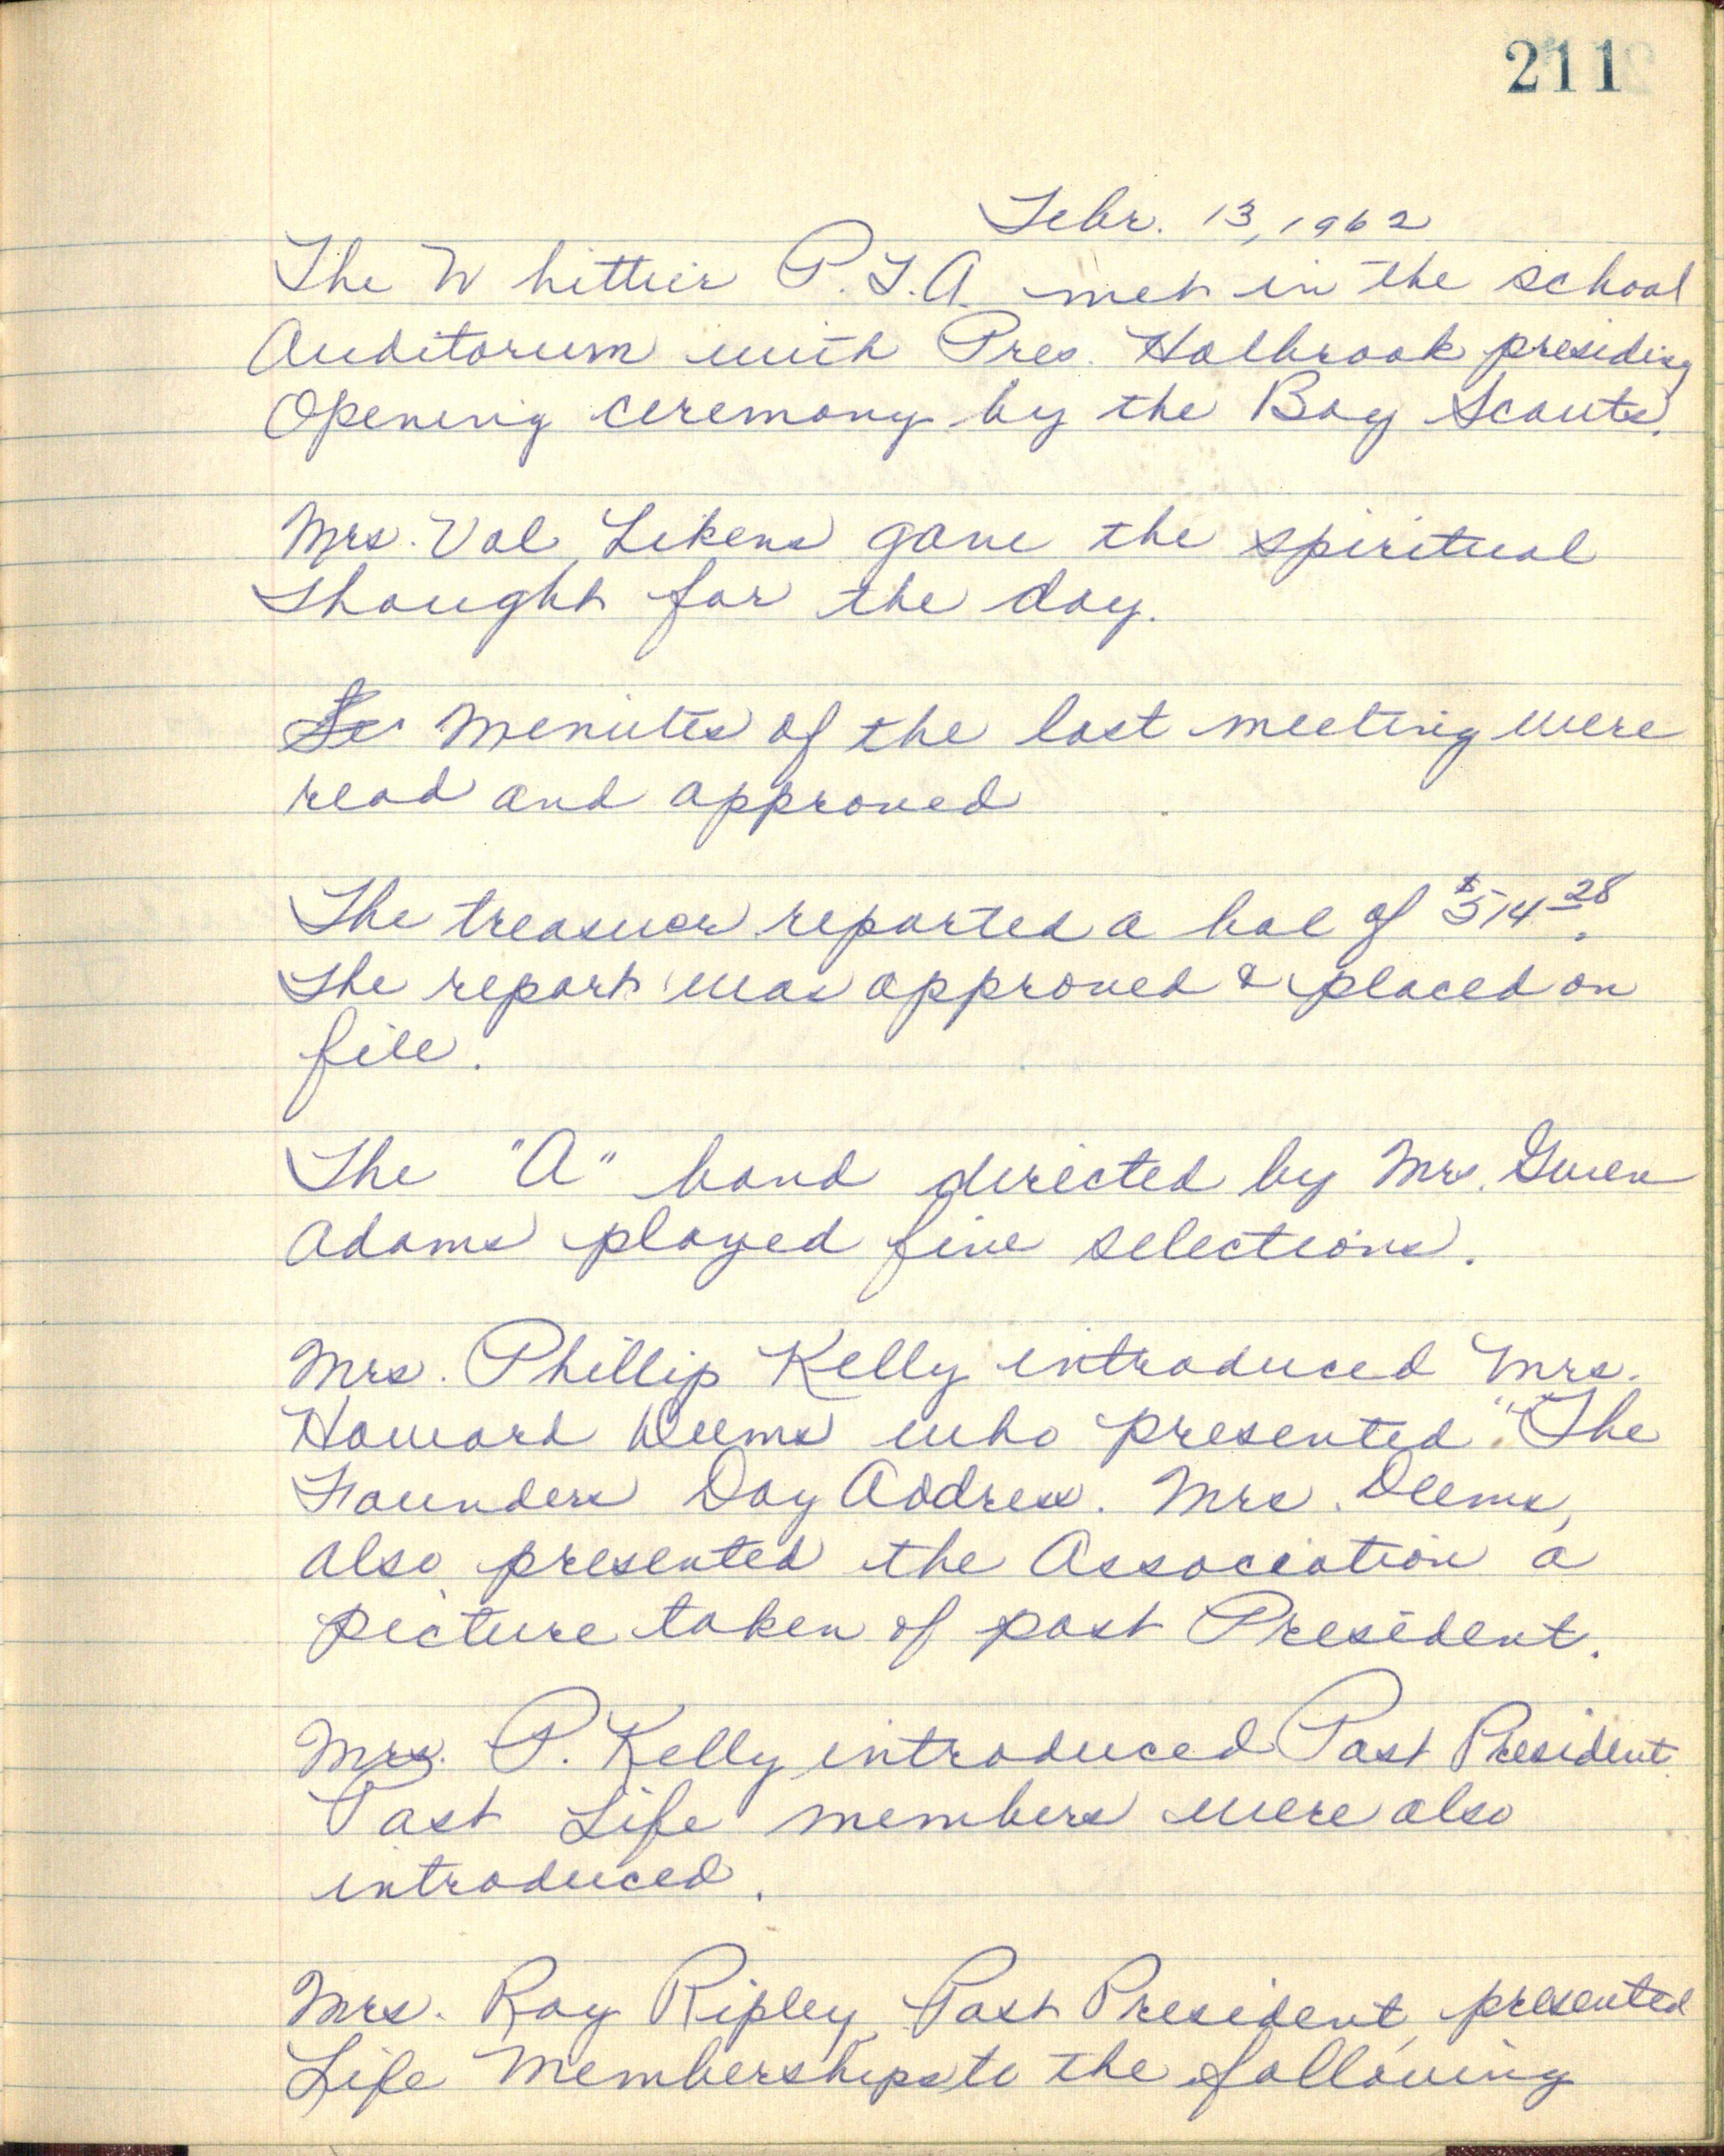 211
Febr. 13, 1962
The Whittier P.T.A. met in the school
Auditorum with Pres. Holbrook presiding
Opening ceremony by the Boy Scouts.
Mrs. Val Likens gave the spiritual
thought for the day.
Menutes of the last meeting were
read and approved
The treasurer reported a bal of $514.28
The report was approved & placed on
file.
The "A" band directed by Mr. Gwen
Adams played five selections.
Mrs. Phillip Kelly introduced Mrs.
Howard Deems who presented "The
Founders Day Address. Mrs. Deems,
also presented the Association a
picture taken of past President.
Mrs. P. Kelly introduced Past President.
Past Life members were also
introduced.
Mrs. Ray Ripley, Past President, presented
Life Memberships to the following